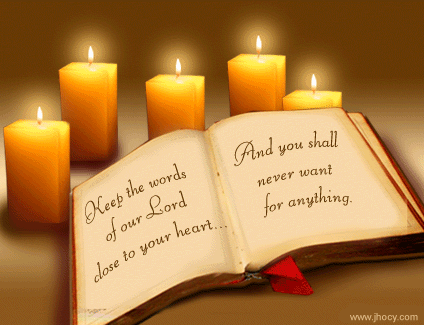 Keep the words
of our Lord
close to your heart...
And you shall
never want
for anything.
www.jhocy.com